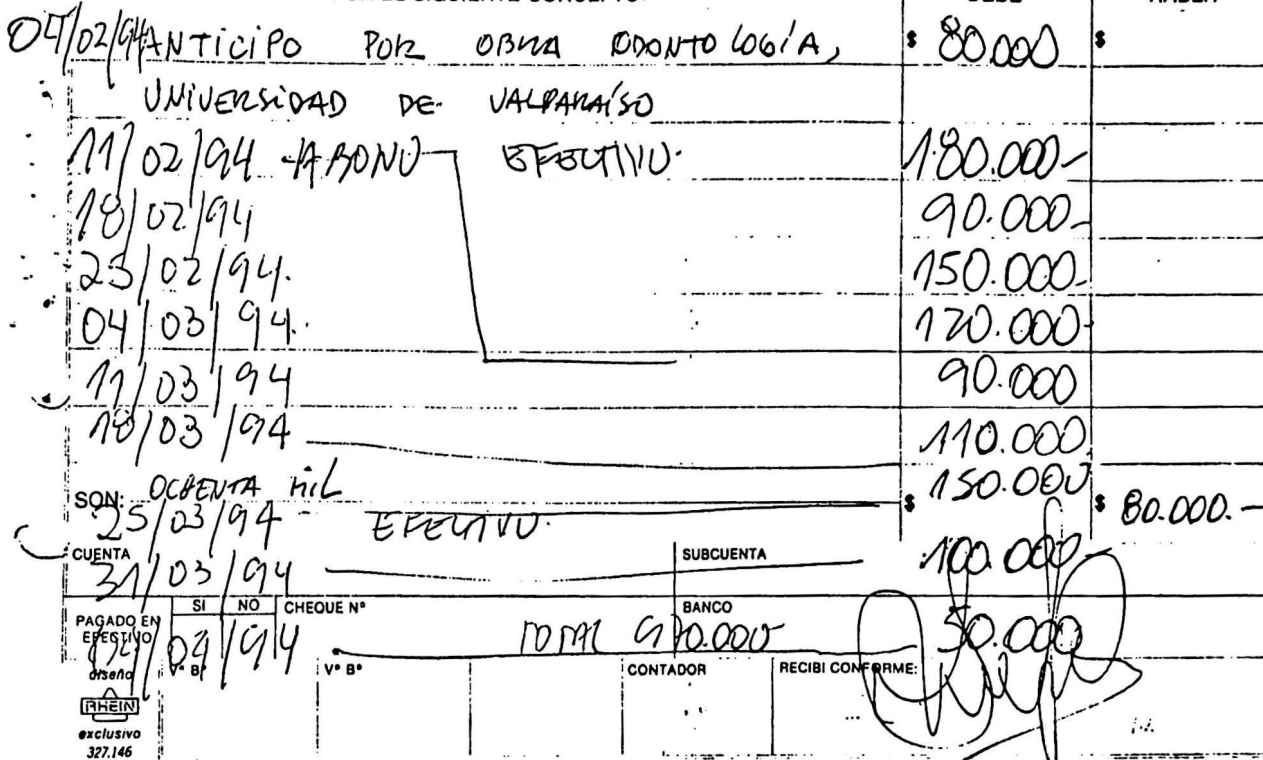 POR EL SIGUIENTE CONCEPTO: DEBE HABER
04/02/94 ANTICIPO POR OBRA ODONTOLOGÍA, $ 80.000 $
UNIVERSIDAD DE VALPARAÍSO
11/02/94 ABONO EFECTIVO. 180.000-
18/02/94 90.000-
23/02/94. 150.000-
04/03/94. 120.000-
11/03/94 90.000
18/03/94 110.000
SON: OCHENTA MIL $ 150.000 $ 80.000.-
25/03/94 EFECTIVO.
CUENTA SUBCUENTA 100.000
31/03/94
PAGADO EN EFECTIVO SI NO CHEQUE Nº BANCO
/04/94 TOTAL 970.000 50.000
diseño Vº Bº Vº Bº CONTADOR RECIBI CONFORME:
RHEIN
exclusivo
327.146